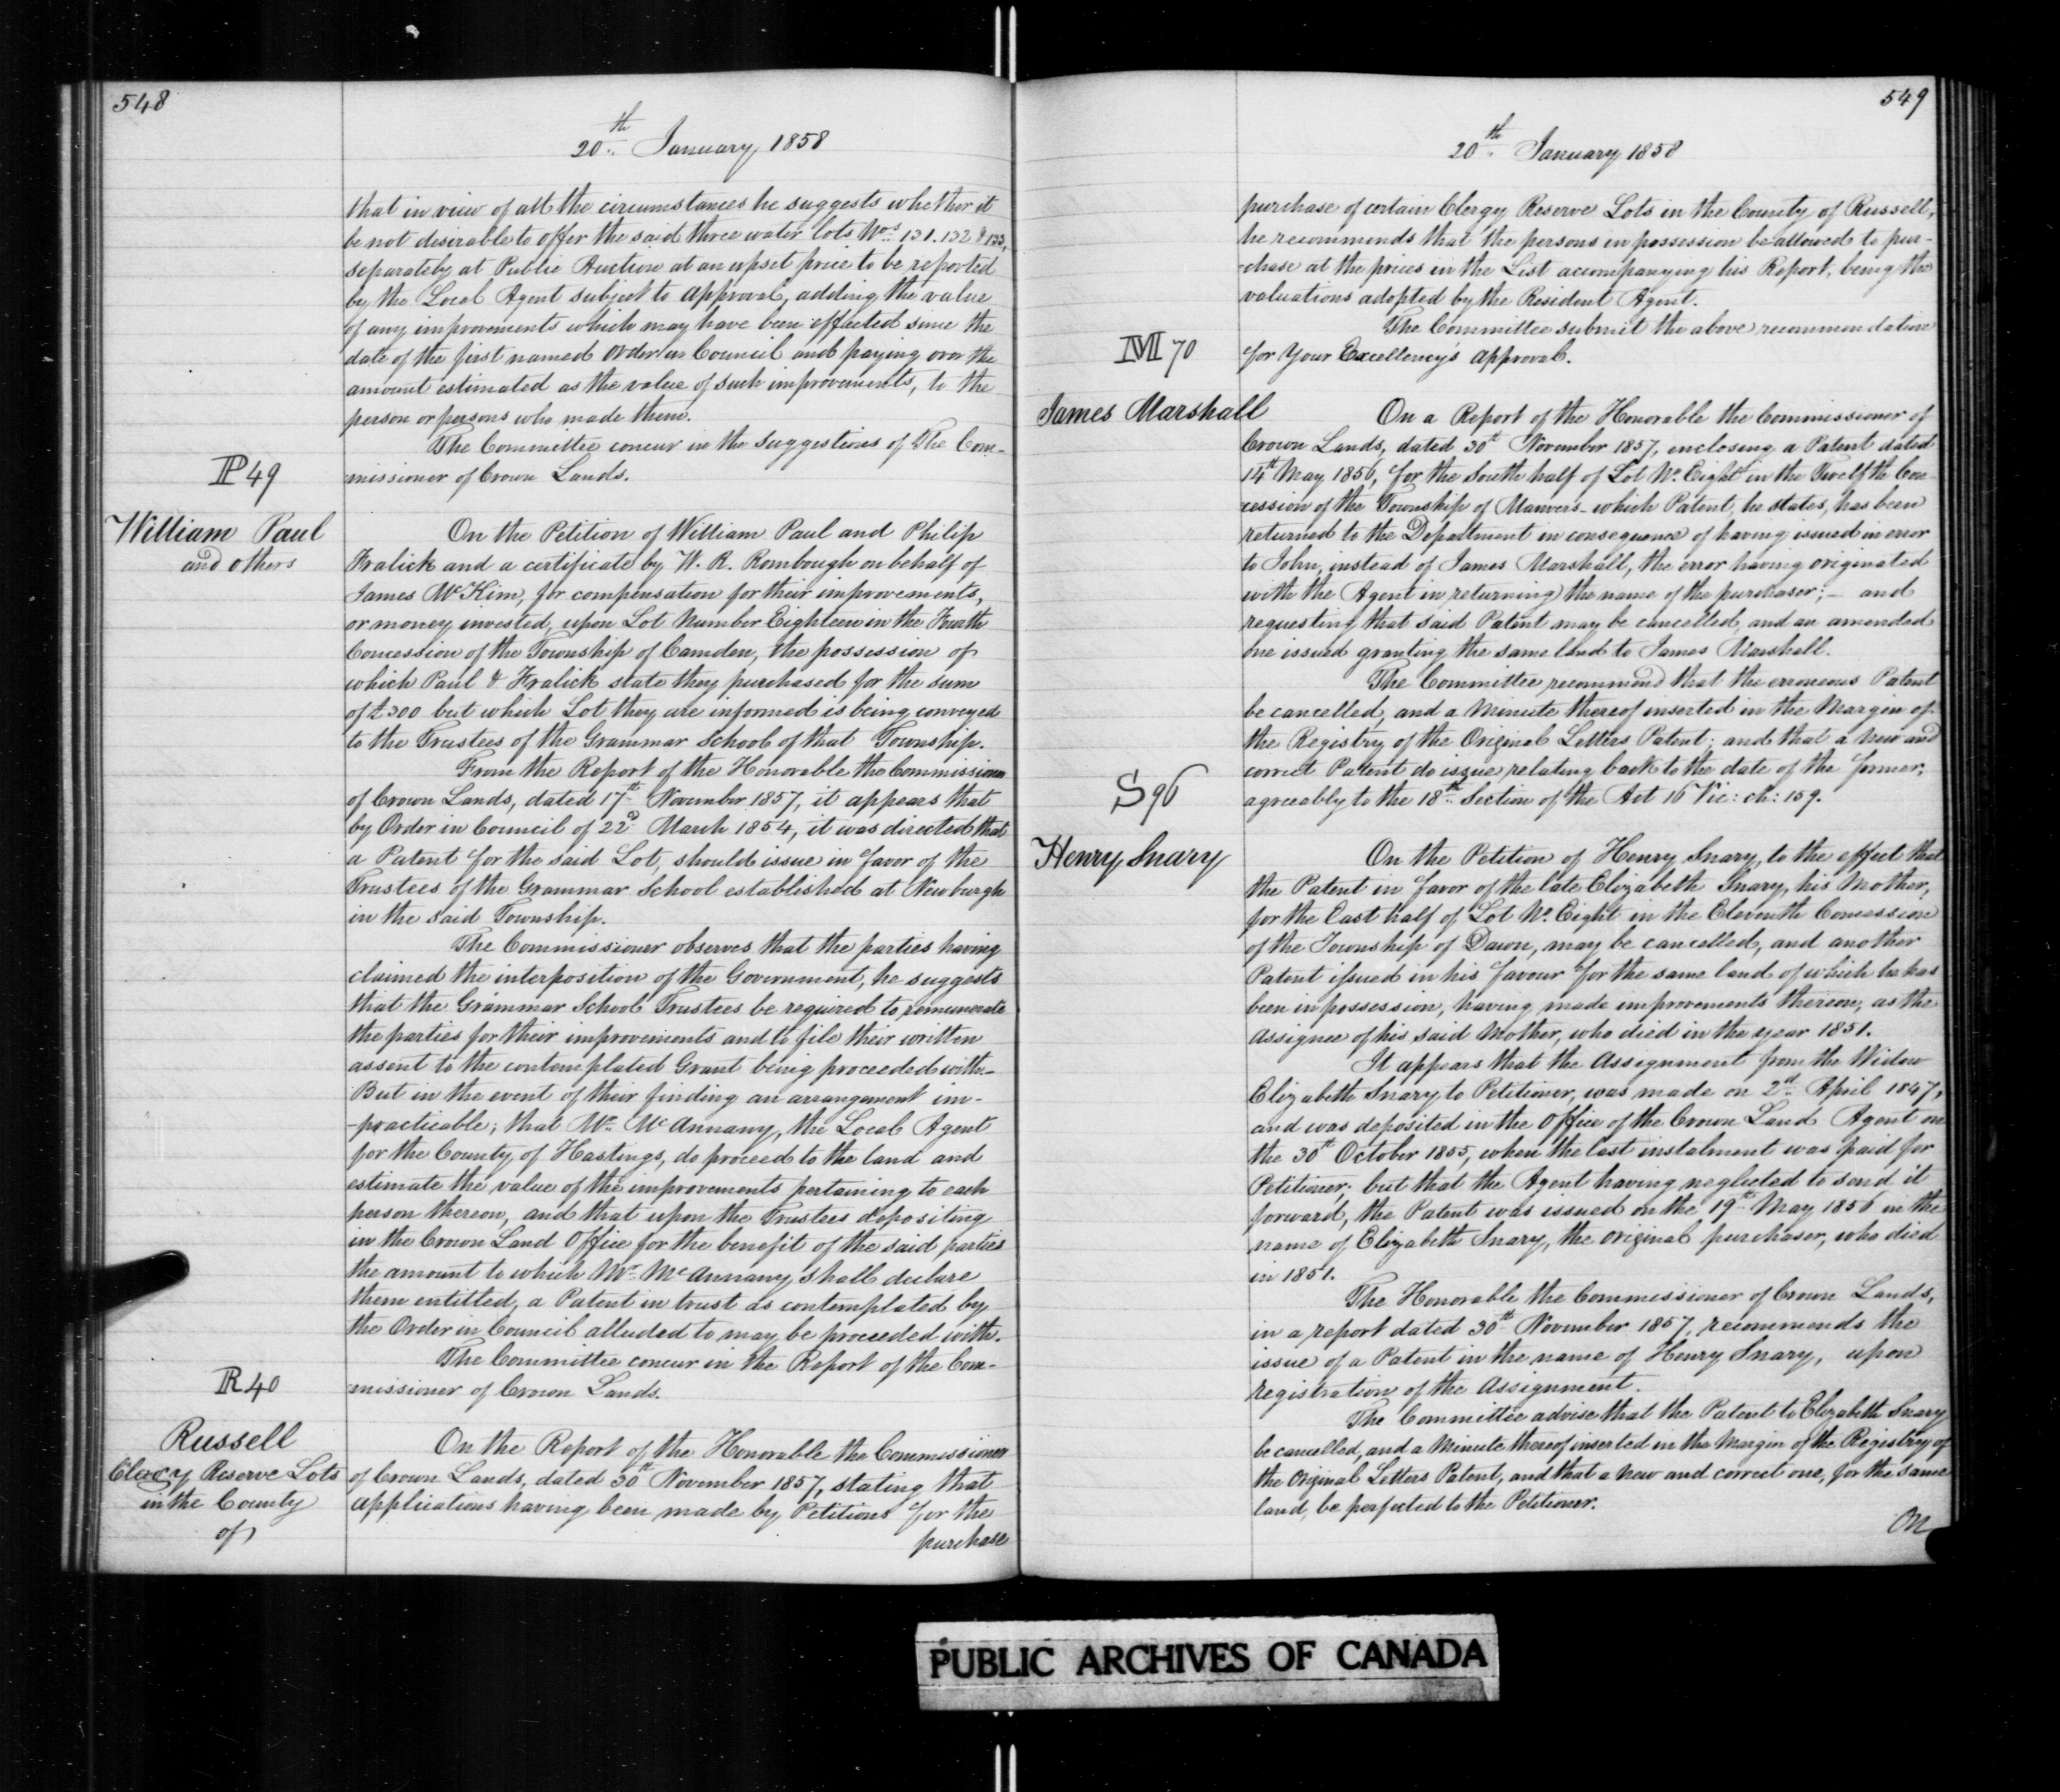 548
20th January 1858
that in view of all the circumstances he suggests whether it
be not desirable to offer the said three water lots Nos 131. 132 & 133,
separately at Public Auction at an upset price to be reported
by the Local Agent subject to approval, adding the value
of any improvements which may have been effected since the
date of the first named Order in Council and paying over the
amount estimated as the value of such improvements, to the
person or persons who made them.
The Committee concur in the suggestions of The Com-
missioner of Crown Lands.
P 49
William Paul
and others
On the Petition of William Paul and Philip
Fralick and a certificate by W. R. Rombough on behalf of
James McKim, for compensation for their improvements,
or money invested, upon Lot Number Eighteen in the Fourth
Concession of the Township of Camden, the possession of
which Paul & Fralick state they purchased for the sum
of £300 but which Lot they are informed is being conveyed
to the Trustees of the Grammar School of that Township.
From the Report of the Honorable the Commissioner
of Crown Lands, dated 17th November 1857, it appears that
by Order in Council of 22d March 1854, it was directed that
a Patent for the said Lot, should issue in favor of the
Trustees of the Grammar School established at Newburgh
in the said Township.
The Commissioner observes that the parties having
claimed the interposition of the Government, he suggests
that the Grammar School Trustees be required to remunerate
the parties for their improvements and to file their written
assent to the contemplated Grant being proceeded with.-
But in the event of their finding an arrangement im-
-practicable; that Mr. McAnnany, the Local Agent
for the County of Hastings, do proceed to the land and
estimate the value of the improvements pertaining to each
person thereon, and that upon the Trustees depositing
in the Crown Land Office for the benefit of the said parties
the amount to which Mr. McAnnany shall declare
them entitled, a Patent in trust as contemplated by
the Order in Council alluded to may be proceeded with.
The Committee concur in the Report of the Com-
missioner of Crown Lands.
R 40
Russell
Clergy Reserve Lots
in the County
of
On the Report of the Honorable the Commissioner
of Crown Lands, dated 30th November 1857, stating that
applications having been made by Petitions for the
purchase
549
20th January 1858
purchase of certain Clergy Reserve Lots in the County of Russell,
he recommends that the persons in possession be allowed to pur-
-chase at the prices in the List accompanying his Report, being the
valuations adopted by the Resident Agent.
The Committee submit the above recommendation
for Your Excellency's approval.
M 70
James Marshall
On a Report of the Honorable the Commissioner of
Crown Lands, dated 30th November 1857, enclosing a Patent dated
14th May 1856, for the South half of Lot No. Eight in the Twelfth Con-
cession of the Township of Manvers - which Patent, he states, has been
returned to the Department in consequence of having issued in error
to John, instead of James Marshall, the error having originated
with the Agent in returning the name of the purchaser; - and
requesting that said Patent may be cancelled, and an amended
one issued granting the same land to James Marshall.
The Committee recommend that the erroneous Patent
be cancelled, and a Minute thereof inserted in the Margin of
the Registry of the Original Letters Patent; and that a new and
correct Patent do issue relating back to the date of the former,
agreeably to the 18th Section of the Act 16 Vic: ch: 159.
S 96
Henry Snary
On the Petition of Henry Snary, to the effect that
the Patent in favor of the late Elizabeth Snary, his Mother,
for the East half of Lot No. Eight in the Eleventh Concession
of the Township of Dawn, may be cancelled, and another
Patent issued in his favour for the same land of which he has
been in possession, having made improvements thereon, as the
Assignee of his said Mother, who died in the year 1851.
It appears that the Assignment from the Widow
Elizabeth Snary to Petitioner, was made on 2d April 1847,
and was deposited in the Office of the Crown Land Agent on
the 30th October 1855, when the last instalment was paid for
Petitioner; but that the Agent having neglected to send it
forward, the Patent was issued on the 19th May 1856 in the
name of Elizabeth Snary, the original purchaser, who died
in 1851.
The Honorable the Commissioner of Crown Lands,
in a report dated 30th November 1857, recommends the
issue of a Patent in the name of Henry Snary, upon
registration of the Assignment.
The Committee advise that the Patent to Elizabeth Snary
be cancelled, and a Minute thereof inserted in the Margin of the Registry of
the Original Letters Patent, and that a new and correct one, for the same
land, be perfected to the Petitioner.
On
PUBLIC ARCHIVES OF CANADA